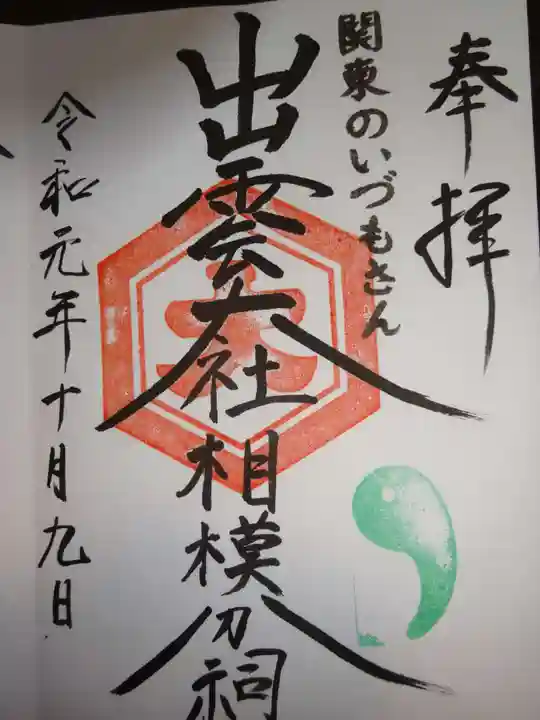 奉拝
関東のいづもさん
出雲大社相模分祠
令和元年十月九日
大